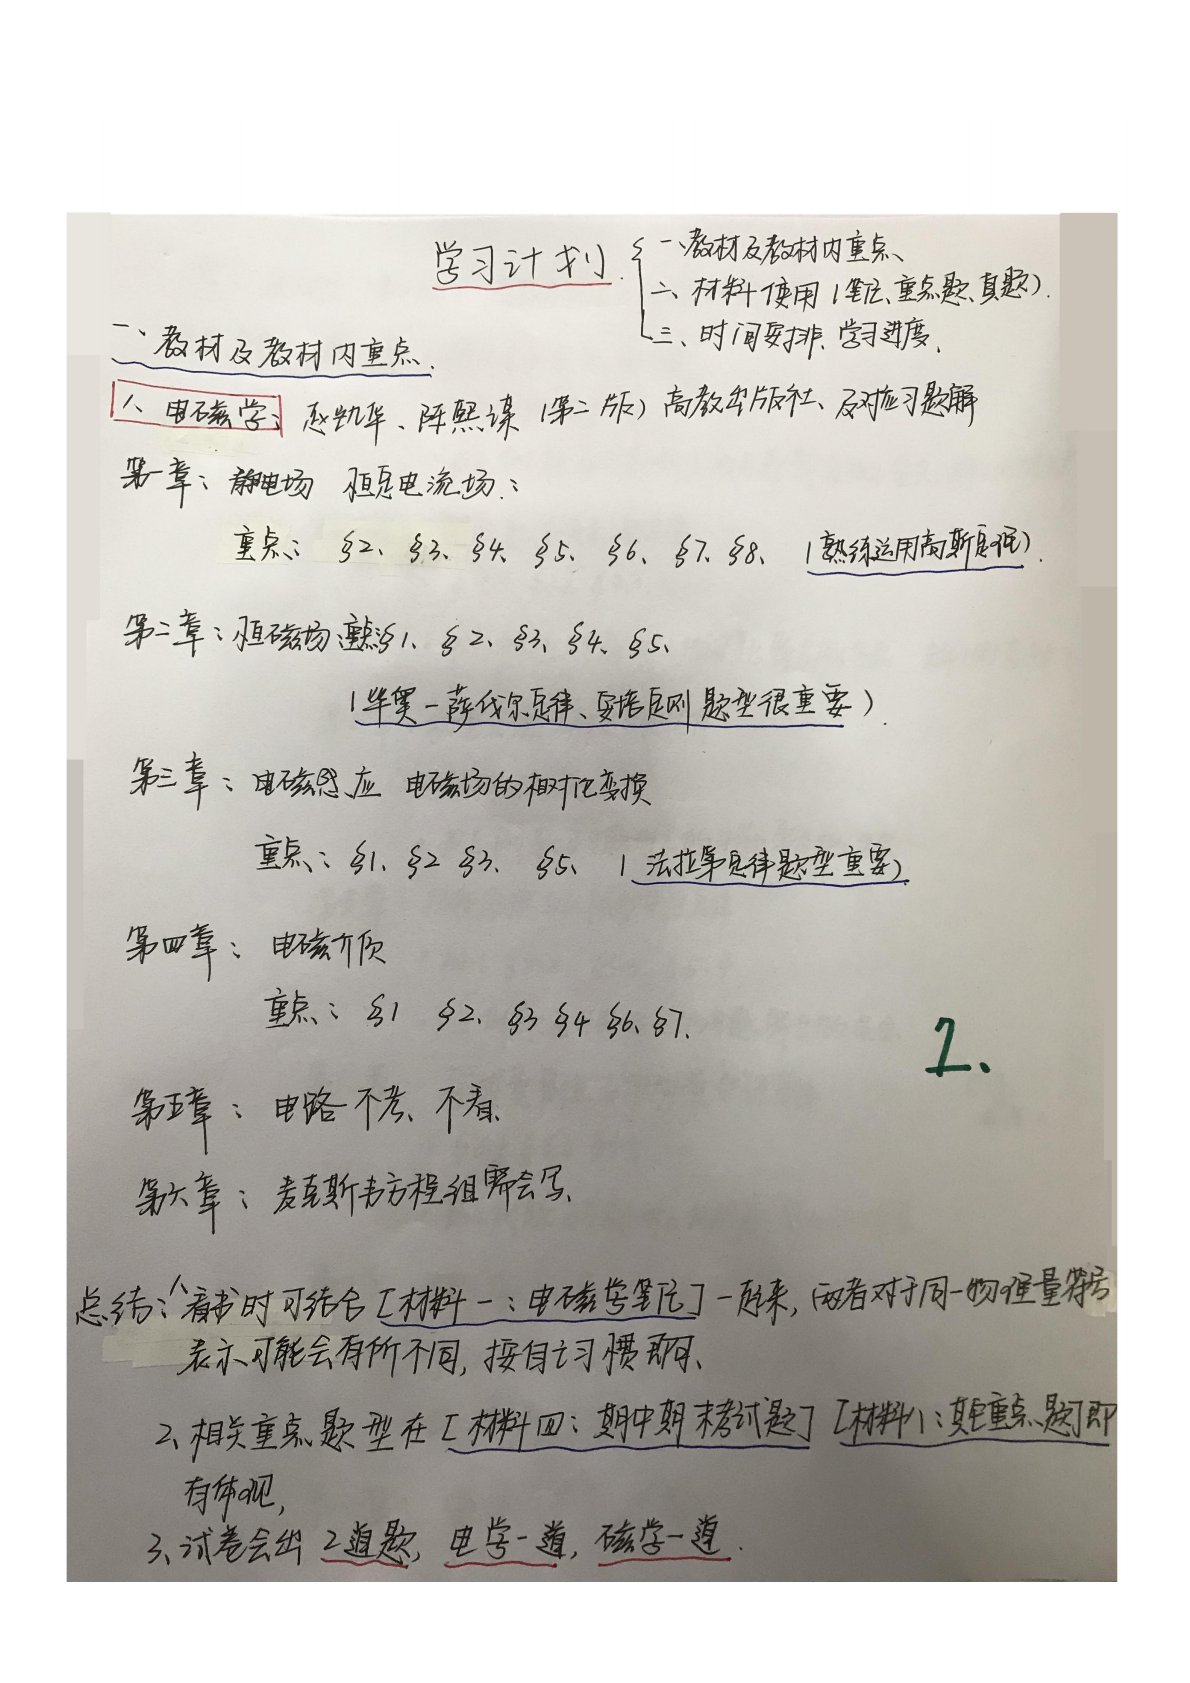 学习计划
一、教材及教材内重点、
二、材料使用(笔记、重点题、真题).
三、时间安排、学习进度、
一、教材及教材内重点.
1、电磁学: 凯华、陈熙谋(第二版)高教出版社、及对应习题解
第一章: 静电场 恒定电流场:
重点: §2、§3、§4、§5、§6、§7、§8、(熟练运用高斯定理).
第二章: 恒磁场 重点:§1、§2、§3、§4、§5、
(毕奥-萨伐尔定律、安培定则题型很重要).
第三章: 电磁感应 电磁场的相对论变换
重点: §1、§2 §3、§5、(法拉第定律题型重要)
第四章: 电磁介质
重点: §1 §2、§3 §4 §6、§7.
1、
第五章: 电路 不考、不看、
第六章: 麦克斯韦方程组需会写、
总结: 1、看书时可结合[材料一:电磁学笔记]一起来, 两者对于同一物理量符号
表示可能会有所不同, 按自己习惯即可、
2、相关重点题型在[材料四:期中期末考试题][材料八:其它重点题]即
有体现,
3、试卷会出2道题, 电学一道, 磁学一道.